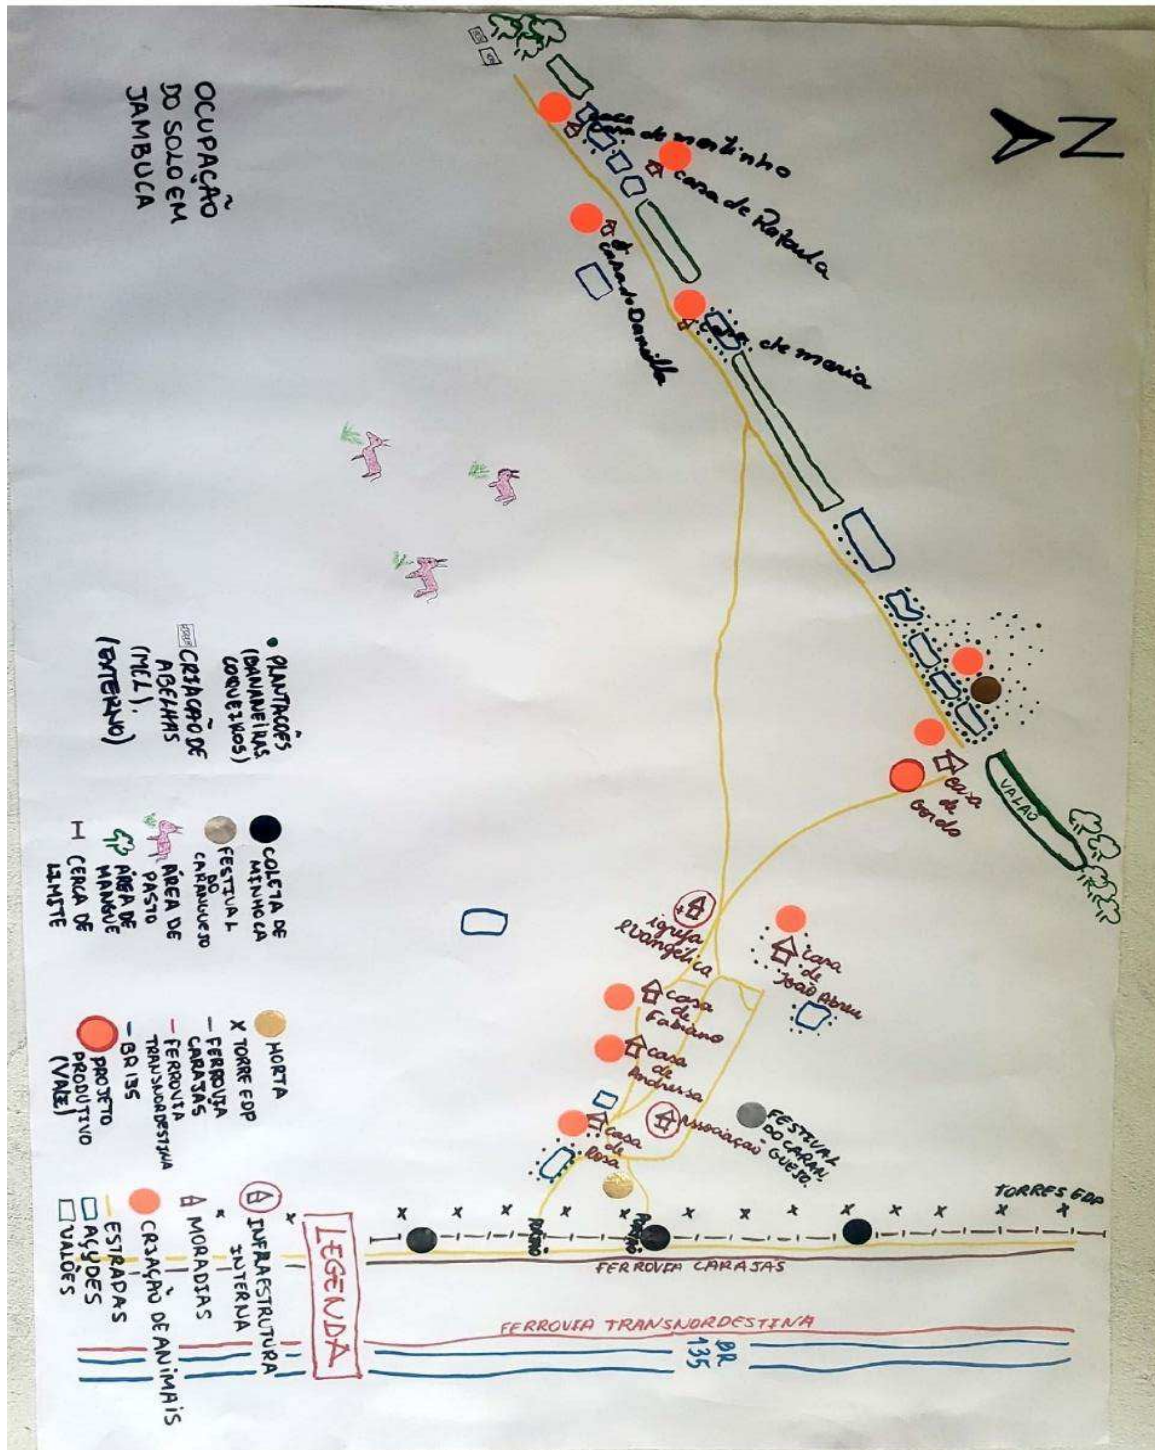 OCUPAÇÃO
DO SOLO EM
JAMBUCA
N
casa de martinho
casa de Rafaela
casa de Danilla
de maria
casa
de
Gordo
VALÃO
igreja
evangélica
casa
de
João Abreu
casa
de
Fabiano
casa
de
Andressa
casa
de
Rosa
Associação
FESTIVAL
DO CARAN
GUEJO.
TORRES EDP
FERROVIA CARAJAS
FERROVIA TRANSNORDESTINA
BR
135
LEGENDA
INFRAESTRUTURA
INTERNA
MORADIAS
CRIAÇÃO DE ANIMAIS
ESTRADAS
AÇUDES
VALÕES
HORTA
X TORRE EDP
FERROVIA
CARAJAS
FERROVIA
TRANSNORDESTINA
BR 135
PROJETO
PRODUTIVO
(VALE)
COLETA DE
MINHOCA
FESTIVAL
DO
CARANGUEJO
ÁREA DE
PASTO
ÁREA DE
MANGUE
CERCA DE
LIMITE
PLANTAÇÕES
(BANANEIRAS
COQUEIROS)
CRIAÇÃO DE
ABELHAS
(MEL).
(EXTERNO)